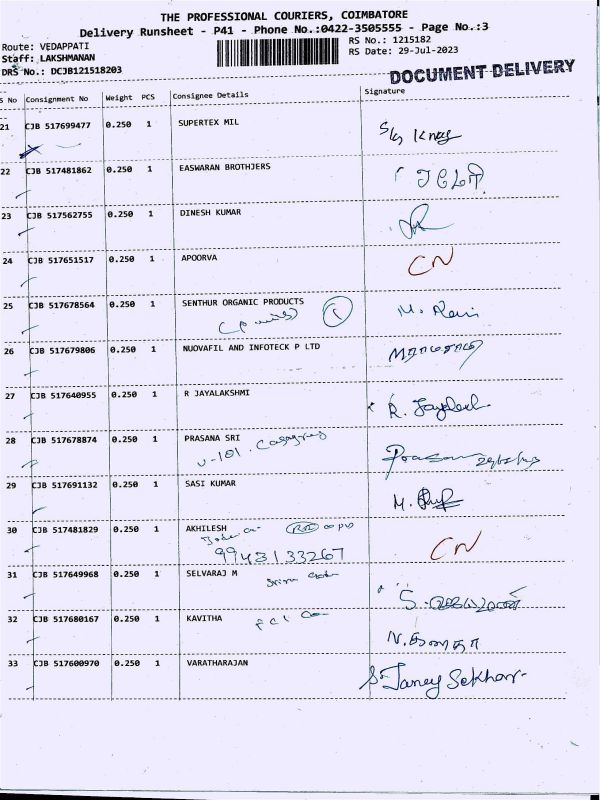 THE PROFESSIONAL COURIERS, COIMBATORE
Delivery Runsheet - P41 - Phone No.:0422-3505555 - Page No.:3
Route: VEDAPPATI
RS No.: 1215182
Staff: LAKSHMANAN
RS Date: 29-Jul-2023
DRS No.: DCJB121518203
DOCUMENT DELIVERY
S No Consignment No Weight PCS Consignee Details Signature
21 CJB 517699477 0.250 1 SUPERTEX MIL
22 CJB 517481862 0.250 1 EASWARAN BROTHJERS
23 CJB 517562755 0.250 1 DINESH KUMAR
24 CJB 517651517 0.250 1 APOORVA CN
25 CJB 517678564 0.250 1 SENTHUR ORGANIC PRODUCTS M. Ravi
26 CJB 517679806 0.250 1 NUOVAFIL AND INFOTECK P LTD
27 CJB 517640955 0.250 1 R JAYALAKSHMI R.
28 CJB 517678874 0.250 1 PRASANA SRI
29 CJB 517691132 0.250 1 SASI KUMAR M.
30 CJB 517481829 0.250 1 AKHILESH CN
9943133267
31 CJB 517649968 0.250 1 SELVARAJ M S.
32 CJB 517680167 0.250 1 KAVITHA N.
33 CJB 517600970 0.250 1 VARATHARAJAN